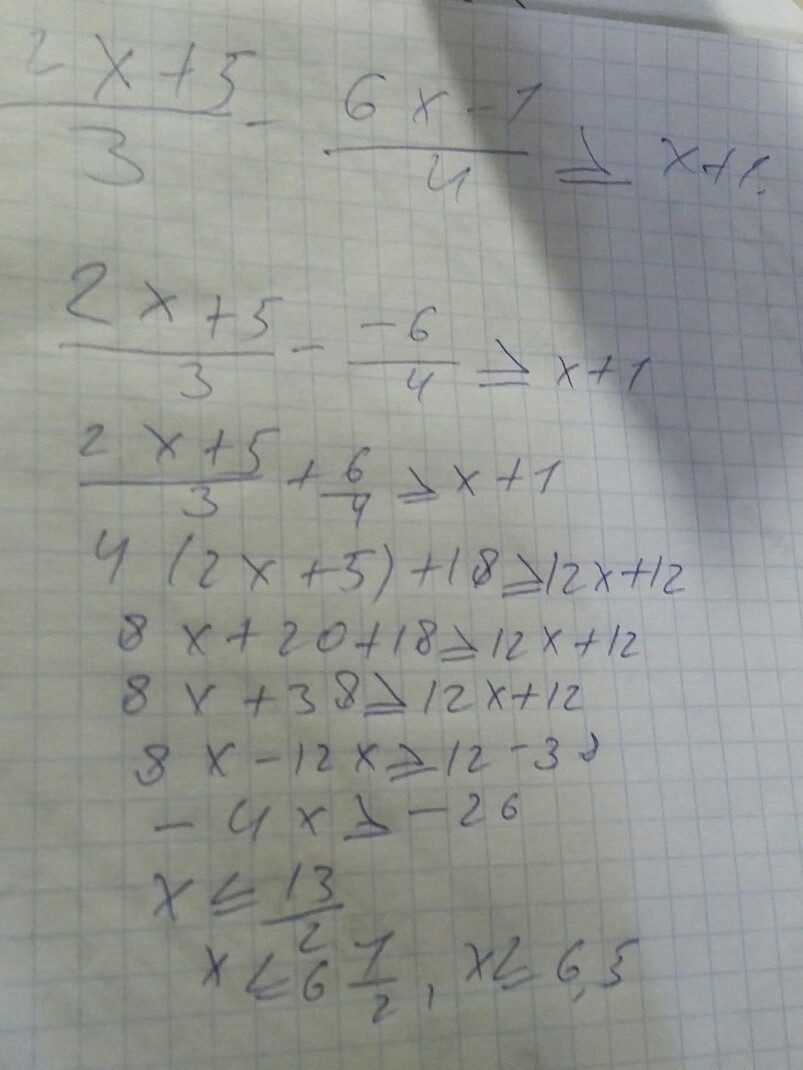 2x+5/3 - 6x-1/4 ≥ x+1.
2x+5/3 - -6/4 ≥ x+1
2x+5/3 + 6/4 ≥ x+1
4(2x+5)+18≥12x+12
8x+20+18≥12x+12
8x+38≥12x+12
8x-12x≥12-38
-4x≥-26
x≤13/2
x≤6 1/2, x≤6,5